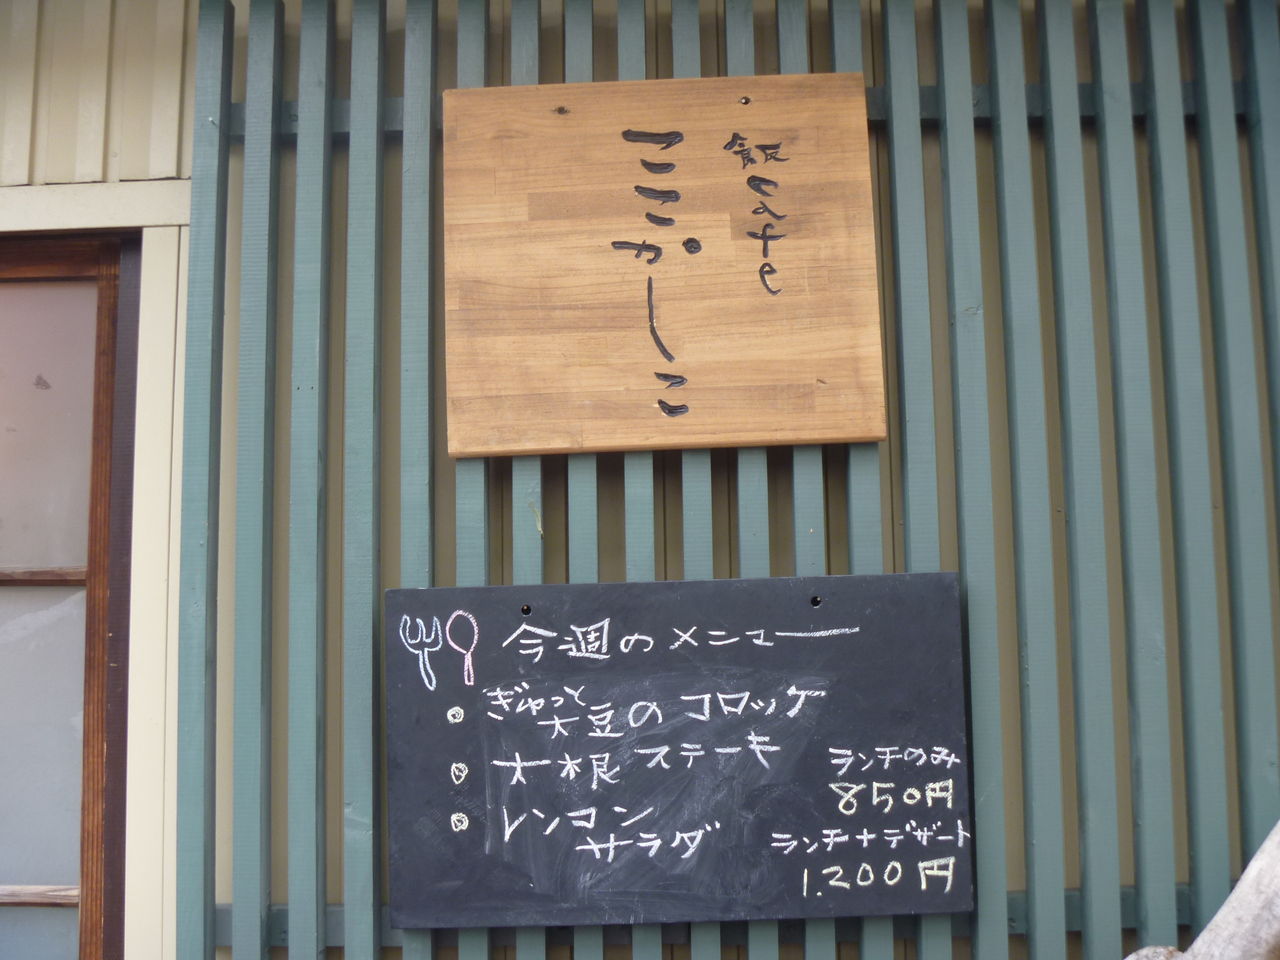 飯cafe
ここかしこ
今週のメニュー
ぎゅっと
大豆のコロッケ
大根ステーキ
レンコン
サラダ
ランチのみ
850円
ランチ+デザート
1.200円